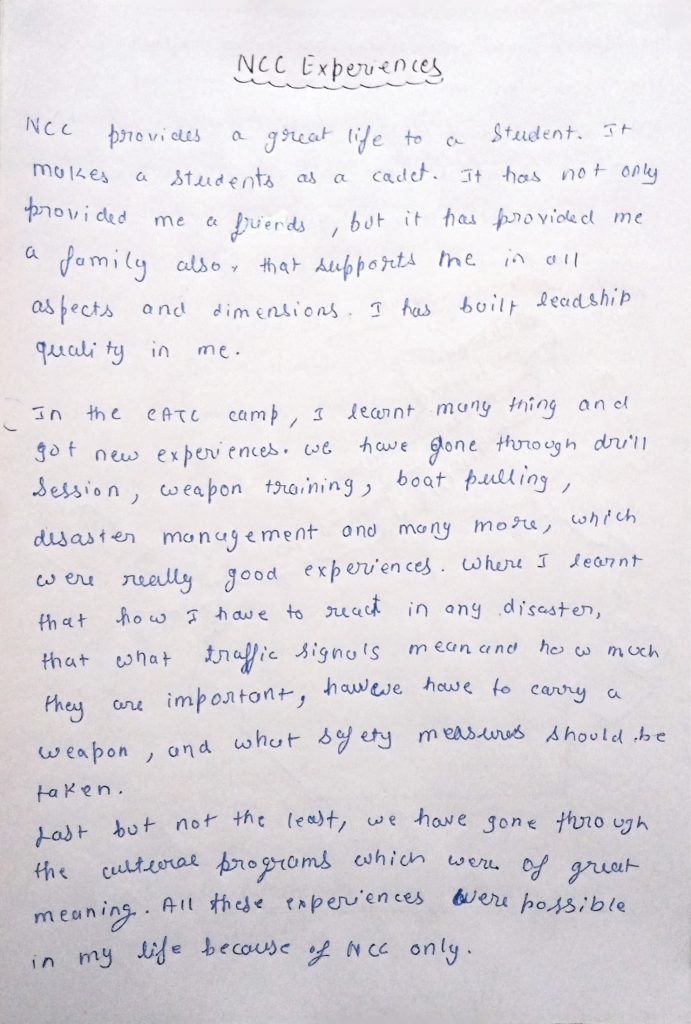 NCC Experiences
NCC provides a great life to a Student. It
makes a students as a cadet. It has not only
provided me a friends, but it has provided me
a family also, that supports me in all
aspects and dimensions. I has built leadship
quality in me.
In the CATC camp, I learnt many thing and
got new experiences. we have gone through drill
session, weapon training, boat pulling,
disaster management and many more, which
were really good experiences. Where I learnt
that how I have to react in any disaster,
that what traffic signals mean and how much
they are important, have to carry a
weapon, and what safety measures should be
taken.
Last but not the least, we have gone through
the cultural programs which were of great
meaning. All these experiences were possible
in my life because of NCC only.